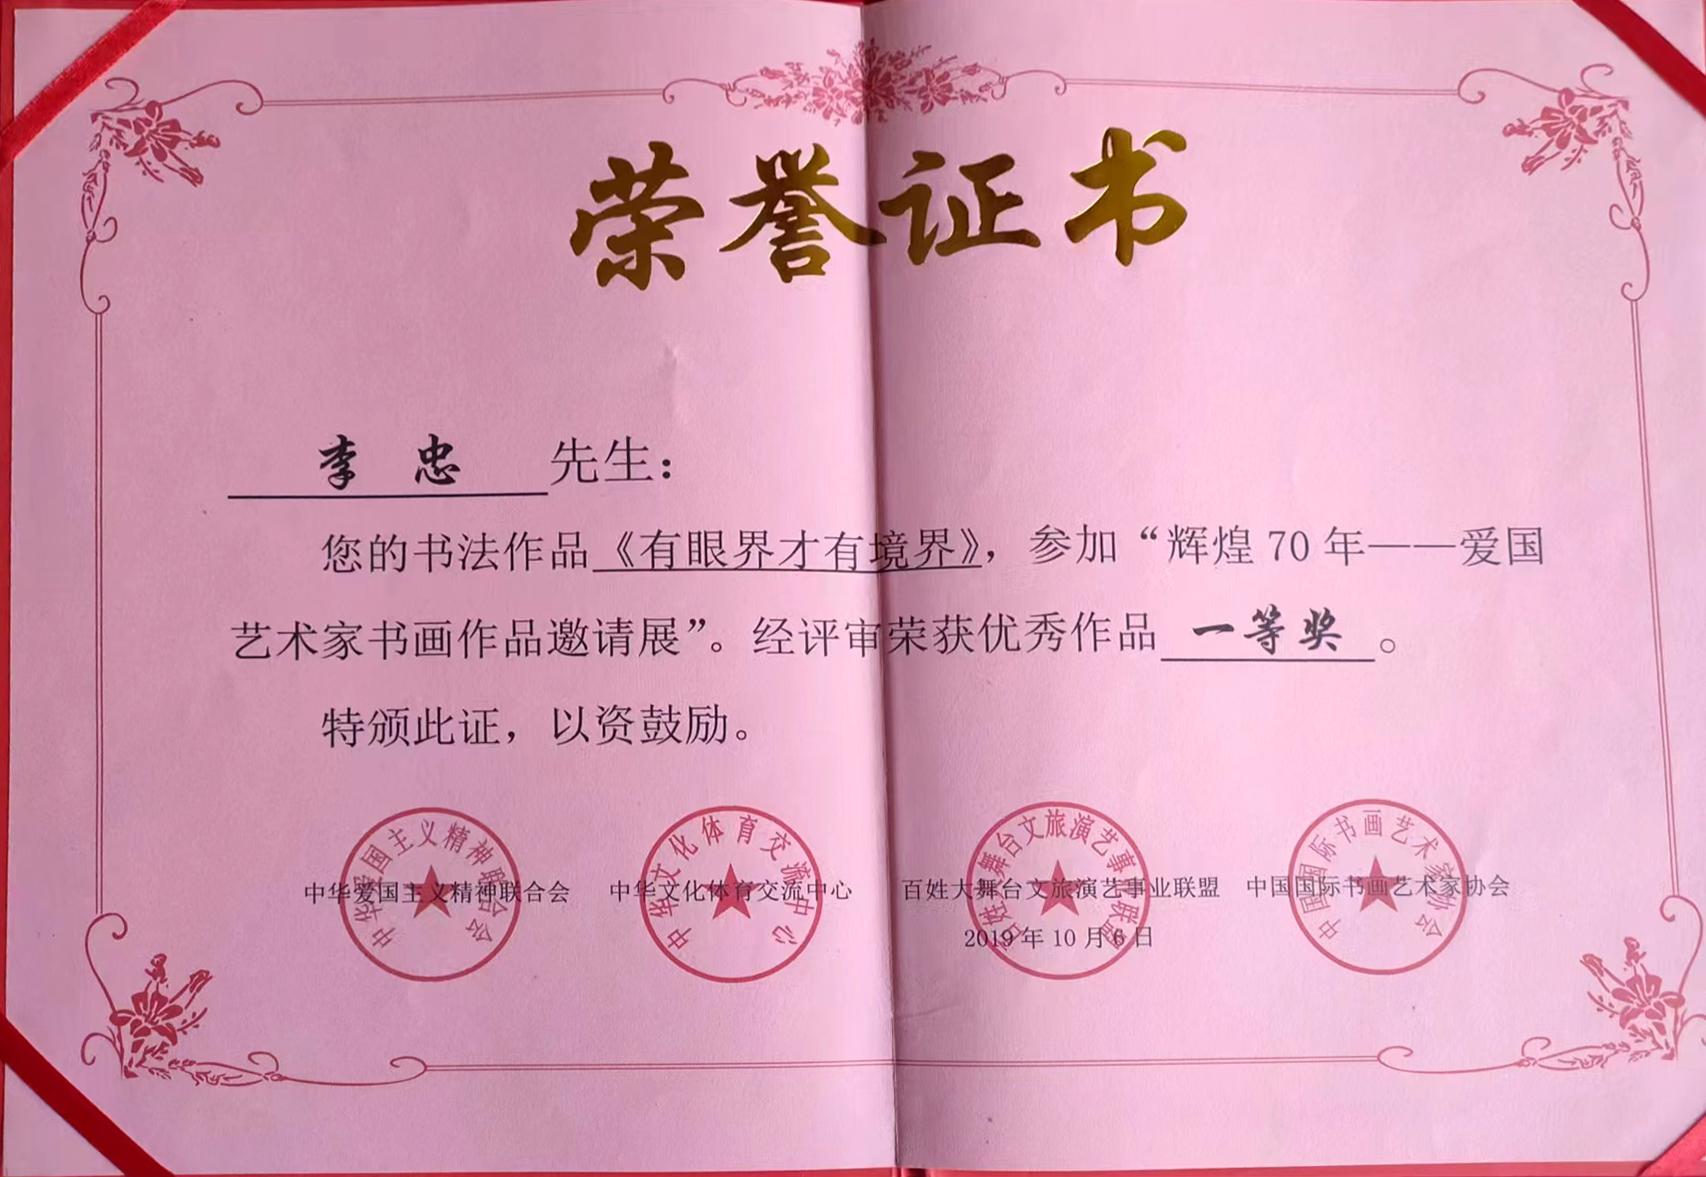 荣誉证书
李忠 先生：
您的书法作品《有眼界才有境界》，参加“辉煌70年——爱国
艺术家书画作品邀请展”。经评审荣获优秀作品 一等奖 。
特颁此证，以资鼓励。
中华爱国主义精神联合会 中华文化体育交流中心 百姓大舞台文旅演艺事业联盟 中国国际书画艺术家协会
2019年10月6日
中华爱国主义精神联合会
中华文化体育交流中心
百姓大舞台文旅演艺事业联盟
中国国际书画艺术家协会